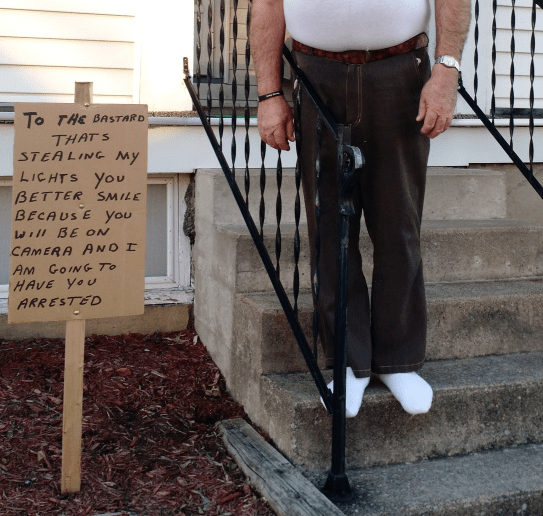 TO THE BASTARD
THATS
STEALING MY
LIGHTS YOU
BETTER SMILE
BECAUSE YOU
WIll BE ON
CAMERA AND I
AM GOING TO
HAVE YOU
ARRESTED